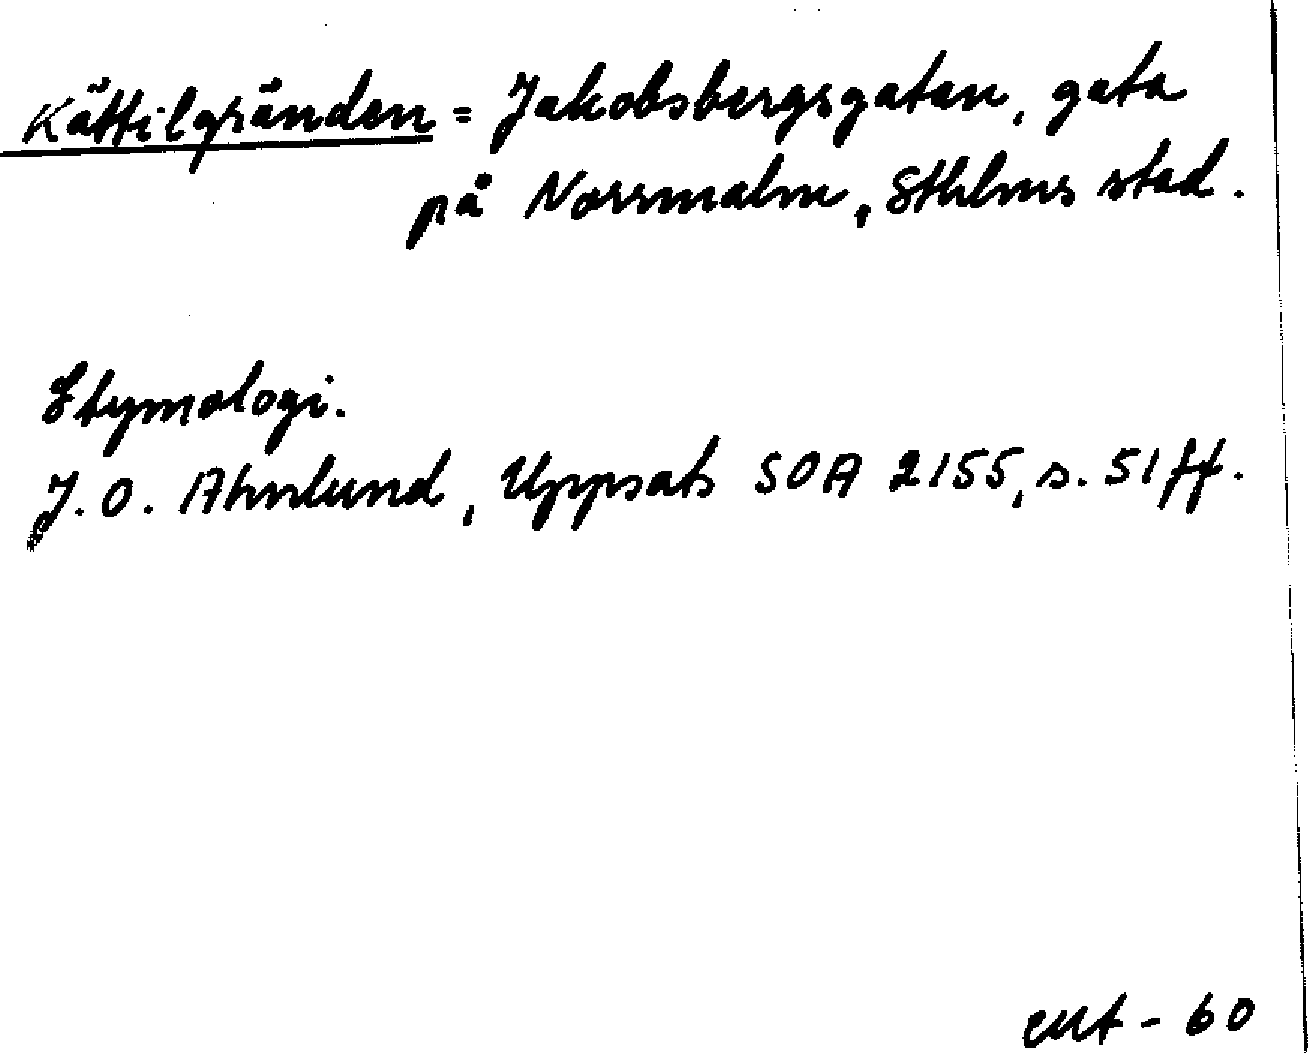 Kättilgränden = Jakobsbergsgatan, gata
på Norrmalm, Sthlms stad.
Etymologi.
J. O. Ahnlund, Uppsats SOA 2155, s. 51 ff.
- 60